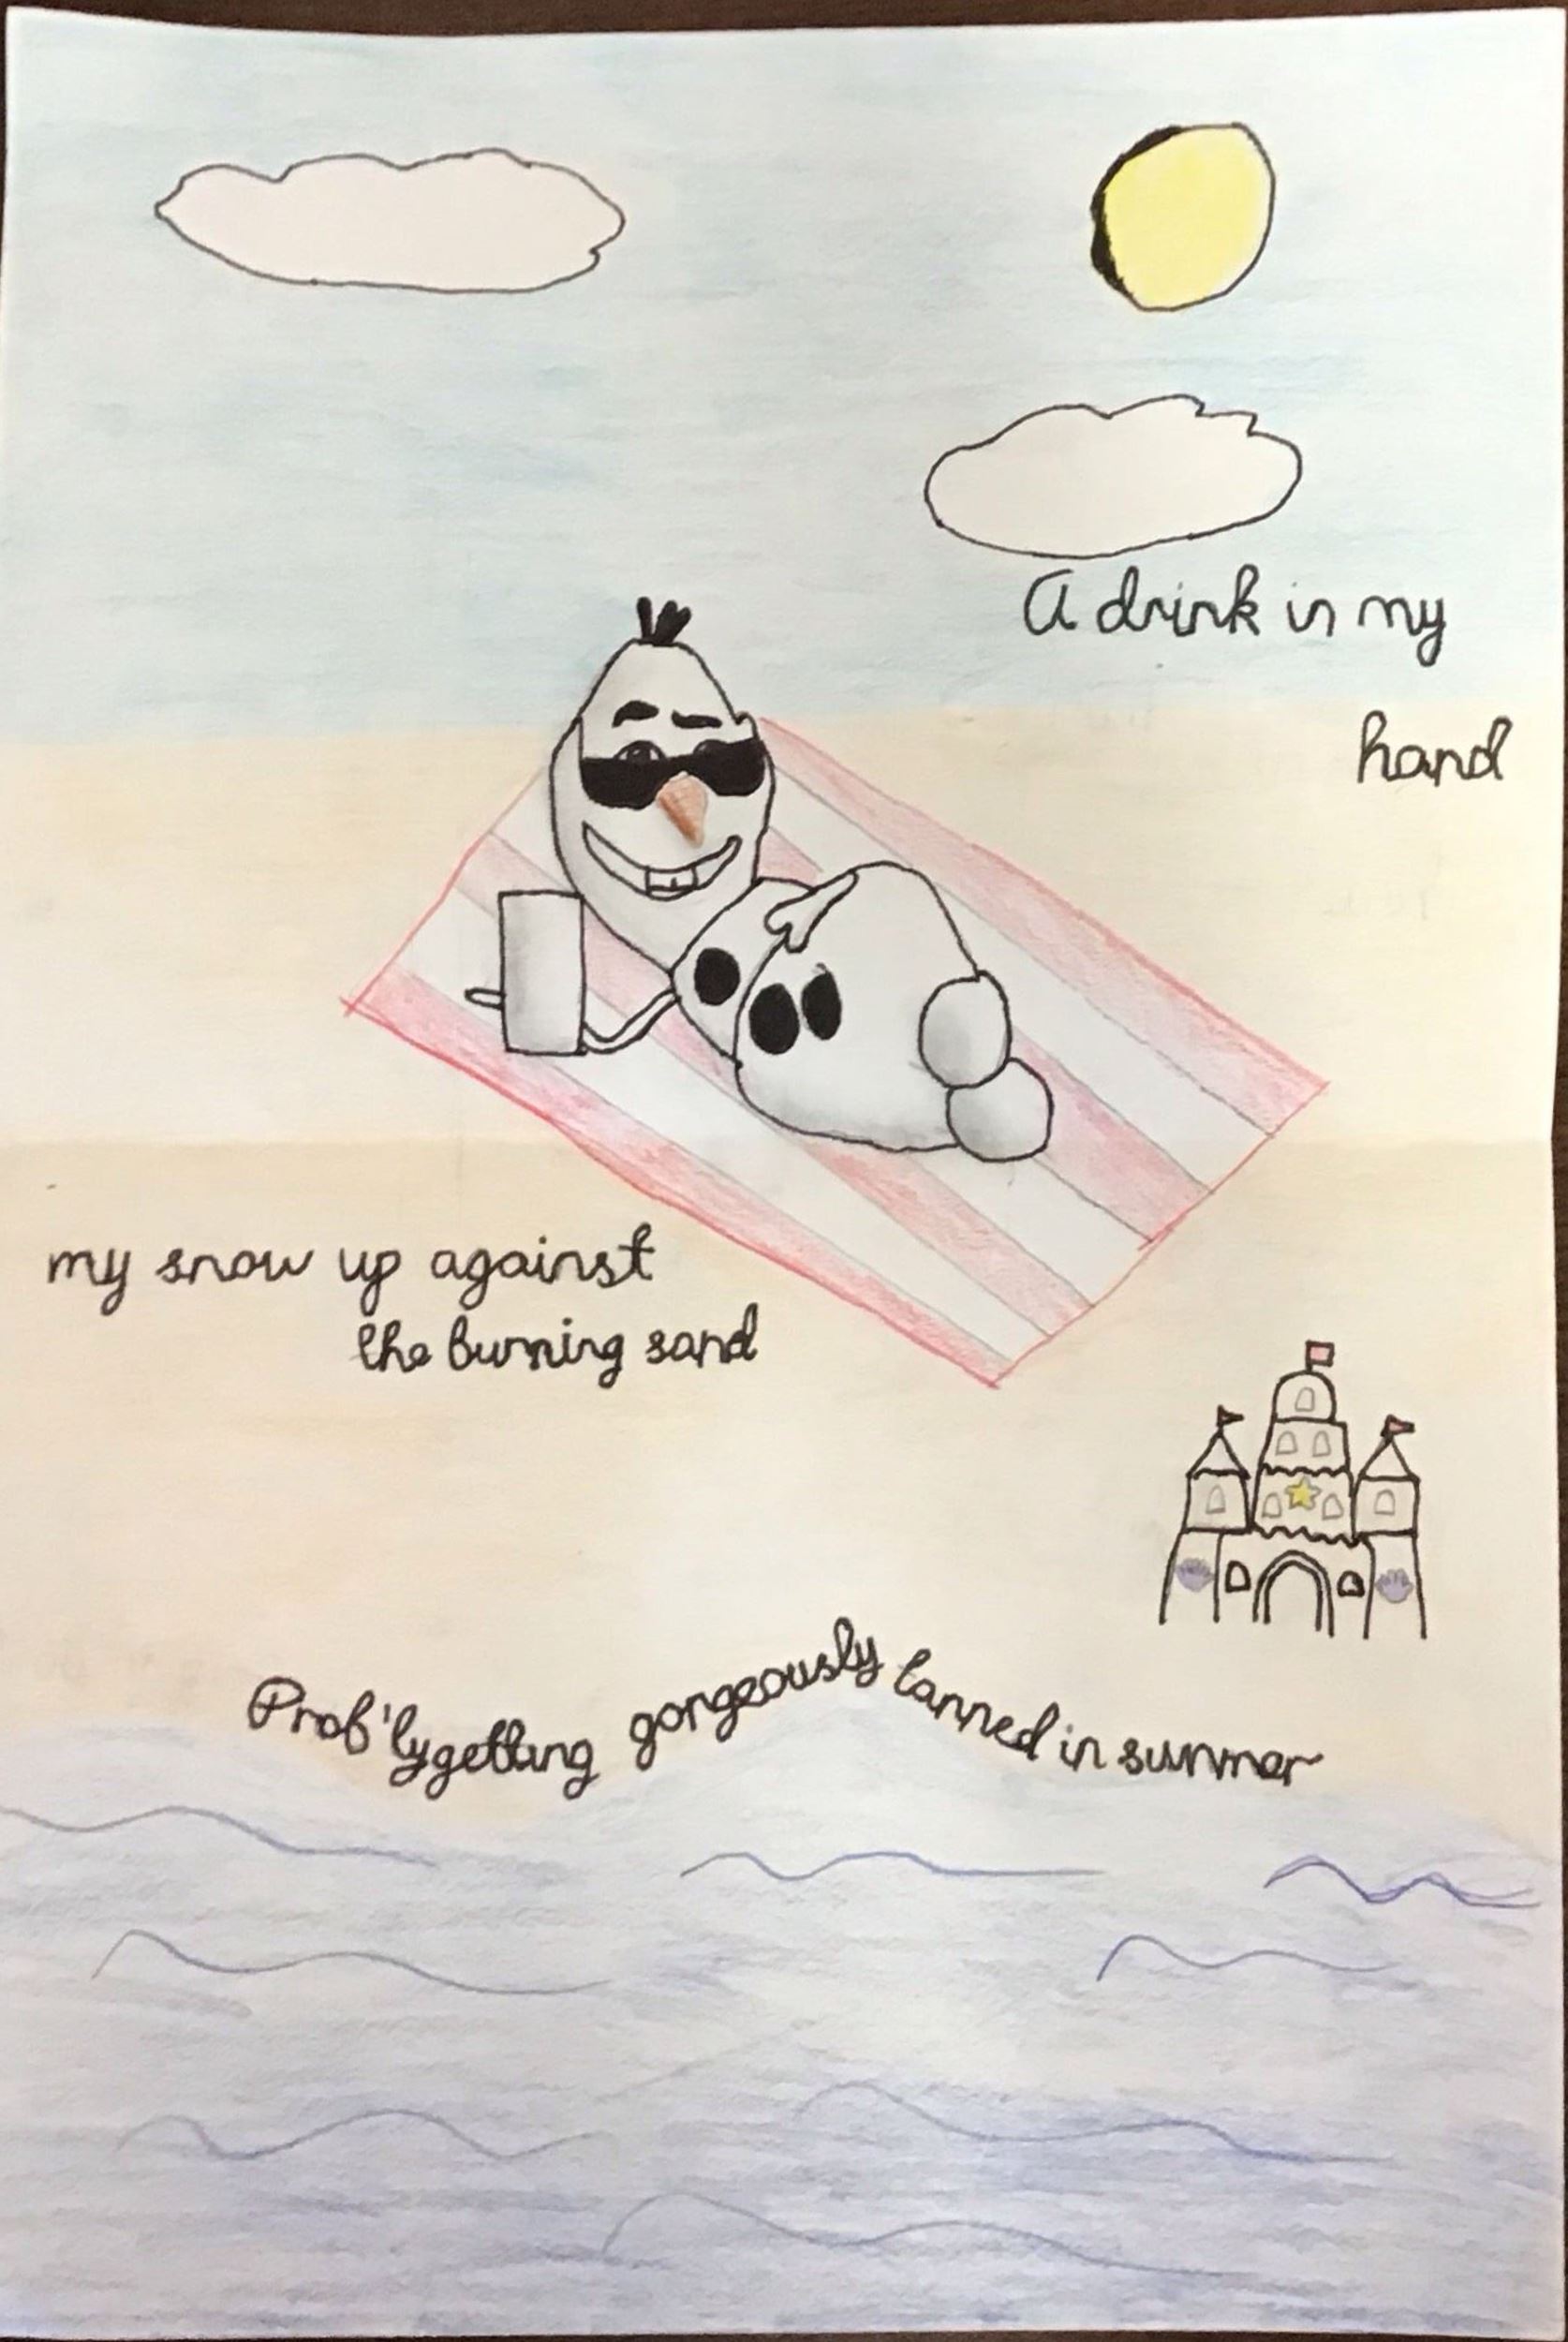 A drink in my
hand
my snow up against
the burning sand
Prob'ly getting gorgeously tanned in summer